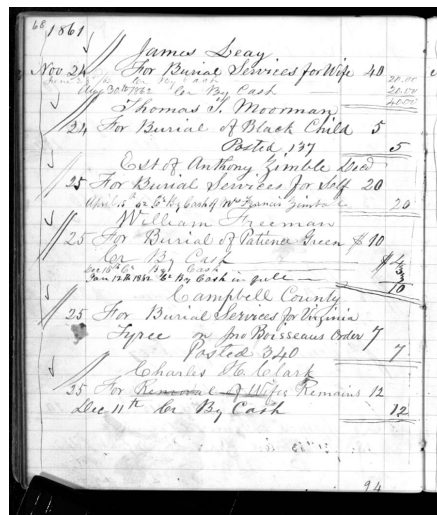 68
1861
James Seay
Nov 24 For Burial Services for Wife 40
Cr By Cash 20.00
Aug 30th 1862 Cr By Cash 20.00
40.00
Thomas T. Moorman
24 For Burial of Black Child 5
Posted 137 5
Est of Anthony Zimble Decd
25 For Burial Services for Self 20
April 62 Cr By Cash of Mrs Francis Zimble 20
William Freeman
25 For Burial of Patience Green $10
Cr By Cash
Dec 16th Cr By Cash
Jan 12th 1862 Cr By Cash in full
10
Campbell County
25 For Burial Services for Virginia
Tyree on Jno Boisseaus Order 7
Posted 340 7
Charles H. Clark
25 For Removal of Wifes Remains 12
Dec 11th Cr By Cash 12
94